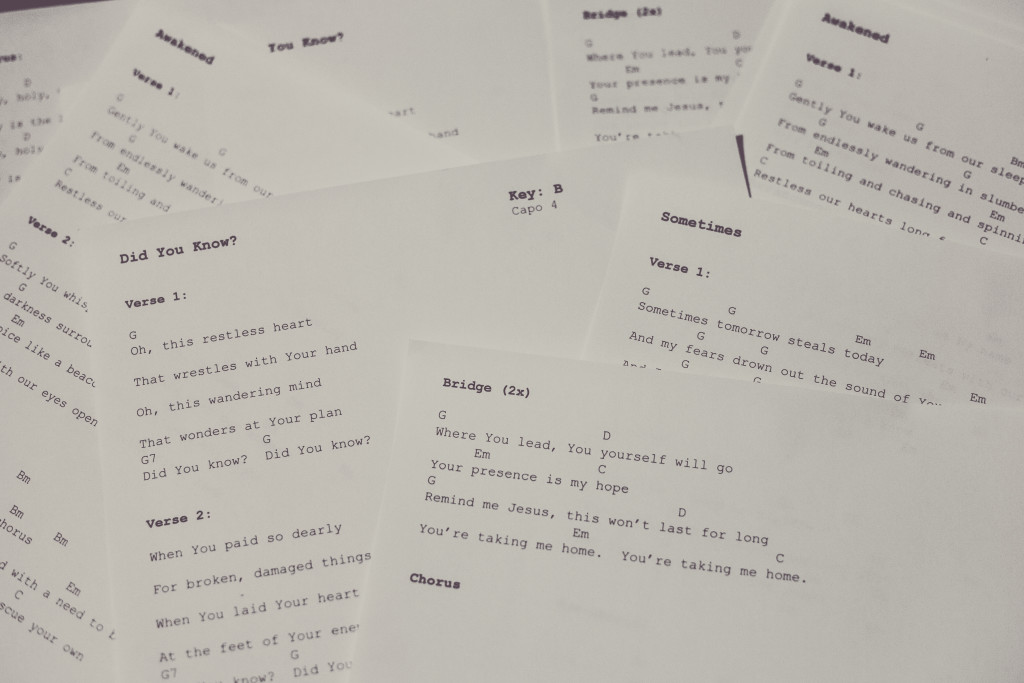 D
holy,
is the
D
Awakened
Verse 1:
G
G
Gently You wake us from our
G
From endlessly
Em
From toiling and
C
Restless our
Verse 2:
G
Softly You
G
darkness
Em
like a
our eyes open
Bm
Bm
Bm
Em
with a need to
C
your own
You Know?
Bridge (2x)
G
D
Where You lead, You
Em
C
Your presence is my
G
Remind me Jesus,
You're
Awakened
Verse 1:
G
G
Bm
Gently You wake us from our sleep
G
G
From endlessly wandering in
Em
Em
From toiling and chasing and
C
C
Restless our hearts
Did You Know?
Key: B
Capo 4
Verse 1:
G
Oh, this restless heart
That wrestles with Your hand
Oh, this wandering mind
That wonders at Your plan
G7 G
Did You know? Did You know?
Verse 2:
When You paid so dearly
For broken, damaged things
When You laid Your heart
At the feet of Your
G7 G
know? Did You
Sometimes
Verse 1:
G G Em Em
Sometimes tomorrow steals today
G G Em
And my fears drown out the sound of
G G
Bridge (2x)
G D
Where You lead, You yourself will go
Em C
Your presence is my hope
G D
Remind me Jesus, this won't last for long
Em C
You're taking me home. You're taking me home.
Chorus